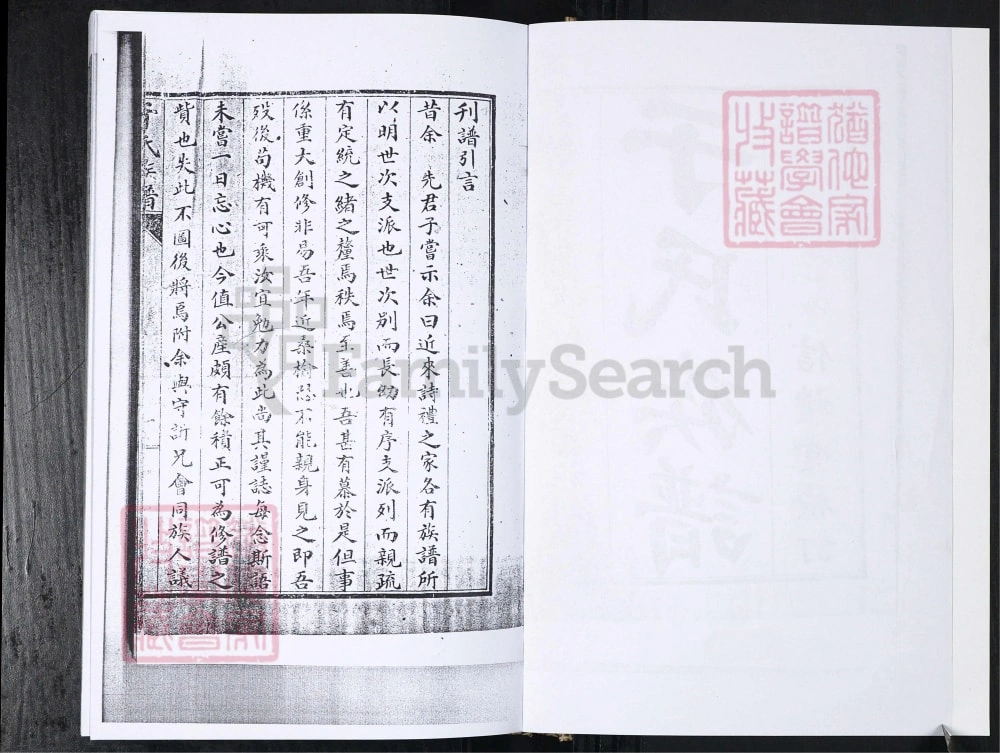 刊譜引言
昔余 先君子嘗示余曰近來詩禮之家各有族譜所
以明世次支派也世次別而長幼有序支派列而親疏
有定統之緒之釐焉秩焉至善也吾甚有慕於是但事
係重大創修非易吾年近桑榆恐不能親身見之即吾
歿後苟機有可乘汝宜勉力為此尚其謹誌每念斯語
未嘗一日忘心也今值公產頗有餘積正可為修譜之
貲也失此不圖後將焉附余與守訢兄會同族人議
氏族譜
FamilySearch
譜學會
收藏